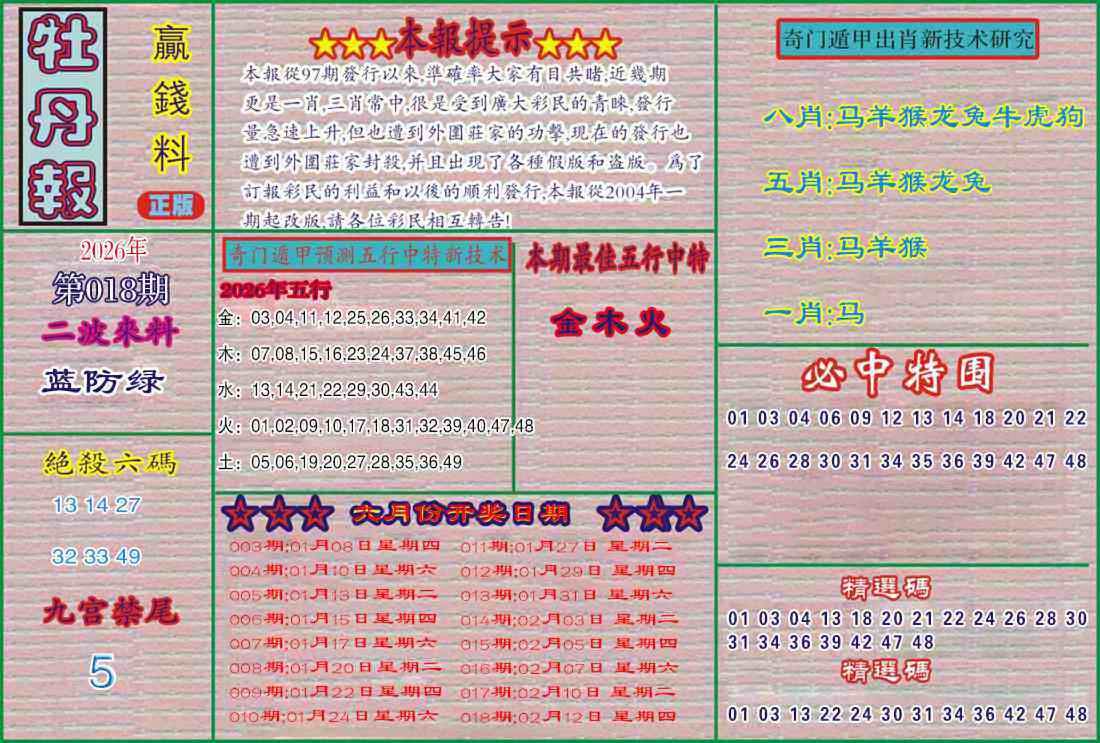 牡丹報
贏錢料
正版
2026年
第018期
二波來料
蓝防绿
絕殺六碼
13 14 27
32 33 49
九宫禁尾
5
★★★本報提示★★★
本報從97期發行以來,準確率大家有目共睹,近幾期
更是一肖,三肖常中,很是受到廣大彩民的青睞,發行
量急速上升,但也遭到外圍莊家的功擊,現在的發行也
遭到外圍莊家封殺,并且出現了各種假版和盗版。爲了
訂報彩民的利益和以後的順利發行,本報從2004年一
期起改版,請各位彩民相互轉告!
奇门遁甲预测五行中特新技术
2026年五行
金：03,04,11,12,25,26,33,34,41,42
木：07,08,15,16,23,24,37,38,45,46
水：13,14,21,22,29,30,43,44
火：01,02,09,10,17,18,31,32,39,40,47,48
土：05,06,19,20,27,28,35,36,49
本期最佳五行中特
金木火
★★★ 六月份开奖日期 ★★★
003期;01月08日星期四 011期;01月27日 星期二
004期;01月10日星期六 012期;01月29日 星期四
005期;01月13日星期二 013期;01月31日 星期六
006期;01月15日星期四 014期;02月03日 星期二
007期;01月17日星期六 015期;02月05日 星期四
008期;01月20日星期二 016期;02月07日 星期六
009期;01月22日星期四 017期;02月10日 星期二
010期;01月24日星期六 018期;02月12日 星期四
奇门遁甲出肖新技术研究
八肖:马羊猴龙兔牛虎狗
五肖:马羊猴龙兔
三肖:马羊猴
一肖:马
必中特围
01 03 04 06 09 12 13 14 18 20 21 22
24 26 28 30 31 34 35 36 39 42 47 48
精選碼
01 03 04 13 18 20 21 22 24 26 28 30
31 34 36 39 42 47 48
精選碼
01 03 13 22 24 30 31 34 36 42 47 48